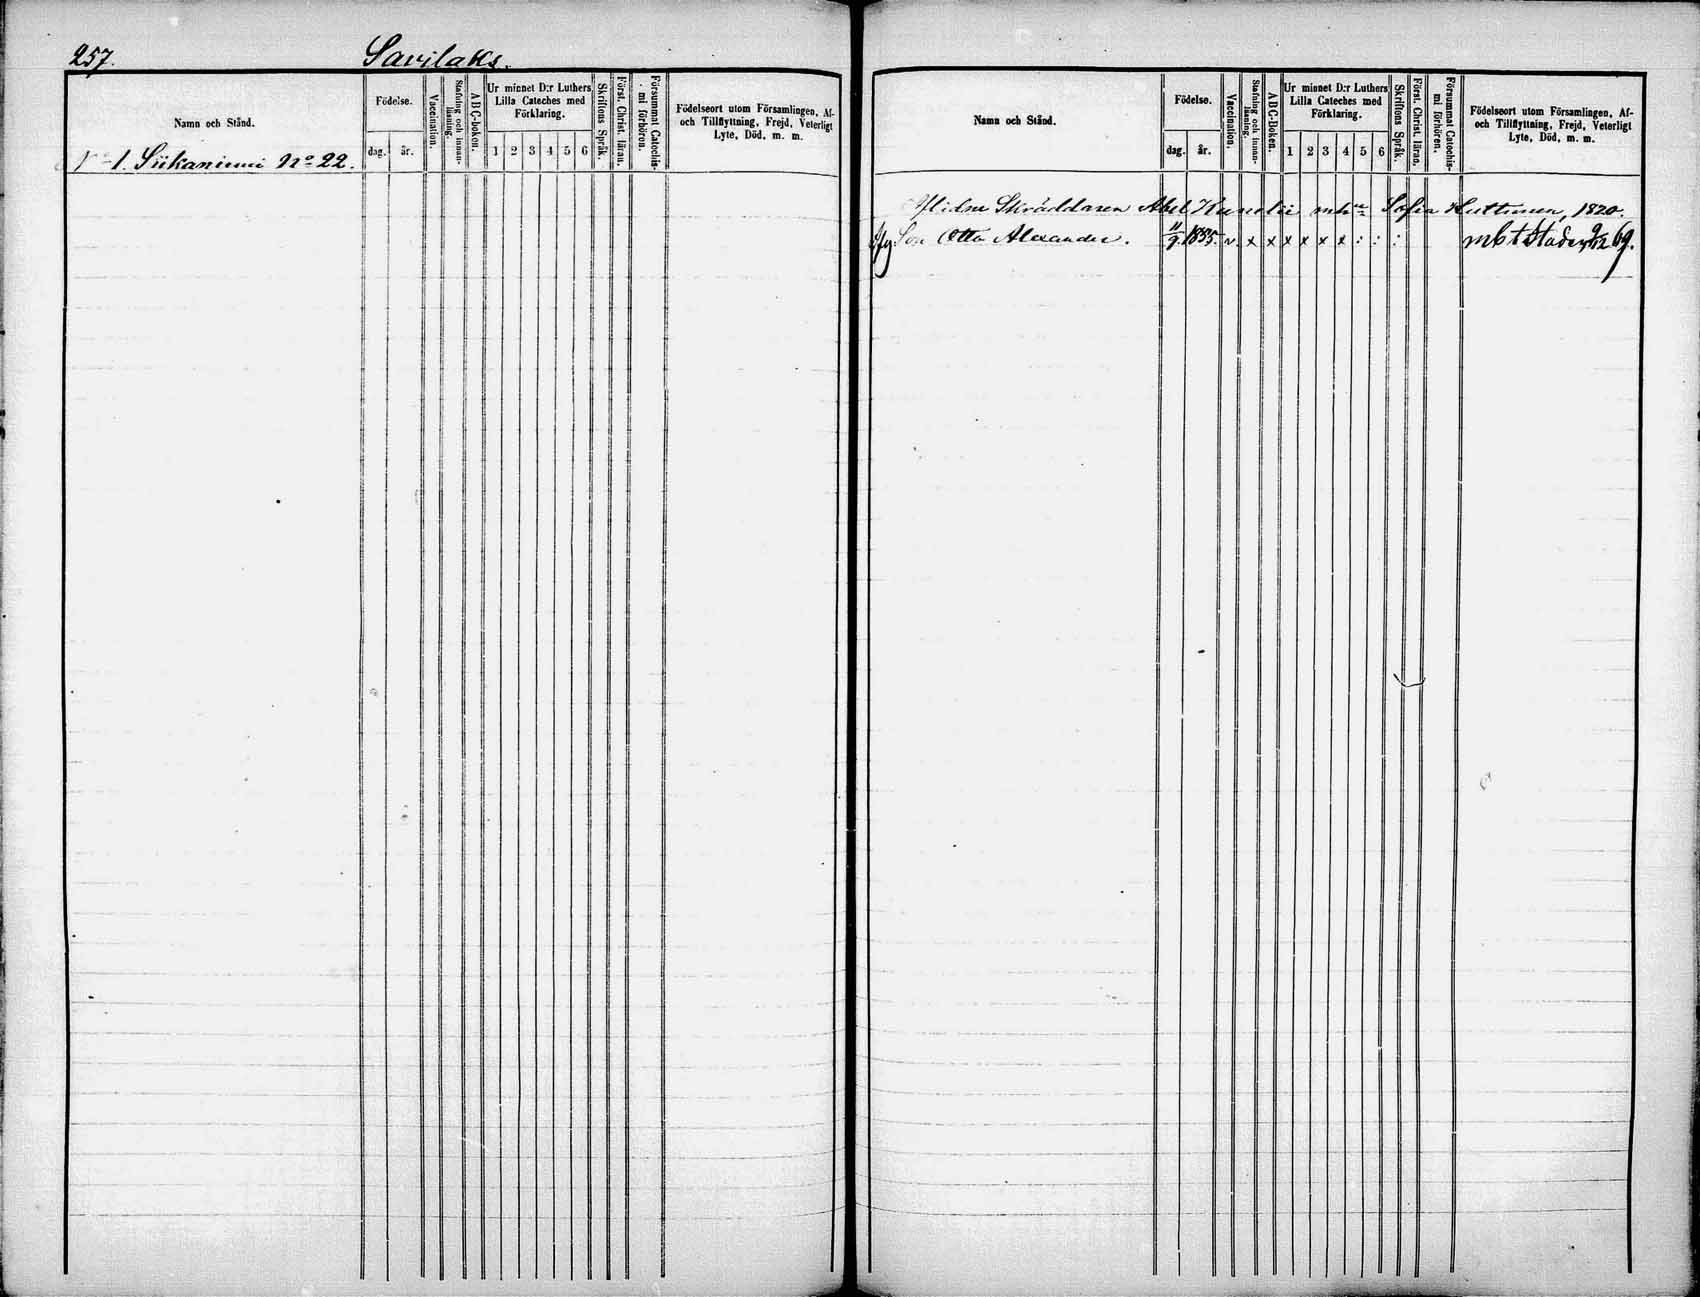 257. Savilaks.
Namn och Stånd.
Födelse.
dag. år.
Vaccination.
Stafning och innan-
läsning.
A B C-boken.
Ur minnet D:r Luthers
Lilla Cateches med
Förklaring.
1 2 3 4 5 6
Skriftens Språk.
Först. Christ. läran.
Försummat Catechis-
mi förhören.
Födelseort utom Församlingen, Af-
och Tillflyttning, Frejd, Veterligt
Lyte, Död, m. m.
No 1. Siikaniemi No 22.
Namn och Stånd.
Födelse.
dag. år.
Vaccination.
Stafning och innan-
läsning.
A B C-boken.
Ur minnet D:r Luthers
Lilla Cateches med
Förklaring.
1 2 3 4 5 6
Skriftens Språk.
Först. Christ. läran.
Försummat Catechis-
mi förhören.
Födelseort utom Församlingen, Af-
och Tillflyttning, Frejd, Veterligt
Lyte, Död, m. m.
Aflidne Skräddaren Abel Kunelii Sofia Huttunen, 1820.
Son Otto Alexander. 11/9. 1855. v. x x x x x x : : : mbt Staden 9/12 69.